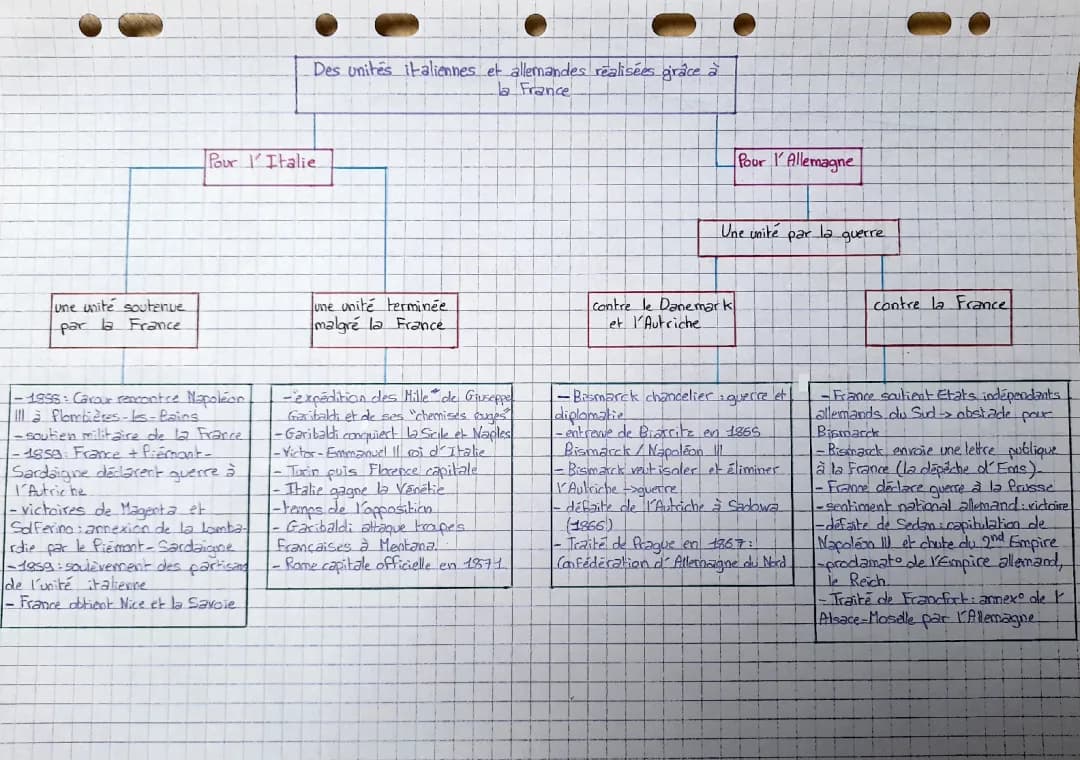 Des unités italiennes et allemandes réalisées grâce à
la France
Pour l'Italie
Pour l'Allemagne
Une unité par la guerre
une unité soutenue
par la France
une unité terminée
malgré la France
contre le Danemark
et l'Autriche
contre la France
- 1858 : Cavour rencontre Napoléon
III à Plombières-les-Bains
- soutien militaire de la France
- 1859 : France + Piémont-
Sardaigne déclarent guerre à
l'Autriche
- victoires de Magenta et
Solferino : annexion de la Lomba-
rdie par le Piémont-Sardaigne
- 1859 : soulèvement des partisans
de l'unité italienne
- France obtient Nice et la Savoie
- "expédition des Mille" de Giuseppe
Garibaldi et de ses "chemises rouges"
- Garibaldi conquiert la Sicile et Naples
- Victor-Emmanuel II roi d'Italie
- Turin puis Florence capitale
- Italie gagne la Vénétie
- temps de l'opposition
- Garibaldi attaque troupes
Françaises à Mentana
- Rome capitale officielle en 1871
- Bismarck chancelier : guerre et
diplomatie
- entrevue de Biarritz en 1865
Bismarck / Napoléon III
- Bismarck veut isoler et éliminer
l'Autriche → guerre
- défaite de l'Autriche à Sadowa
(1866)
- Traité de Prague en 1867 :
Confédération d'Allemagne du Nord
- France soutient Etats indépendants
allemands du Sud → obstacle pour
Bismarck
- Bismarck envoie une lettre publique
à la France (la dépêche d'Ems)
- France déclare guerre à la Prusse
- sentiment national allemand : victoire
- défaite de Sedan : capitulation de
Napoléon III et chute du 2nd Empire
- proclamato de l'Empire allemand,
le Reich
- Traité de Francfort : annexo de l'
Alsace-Moselle par l'Allemagne